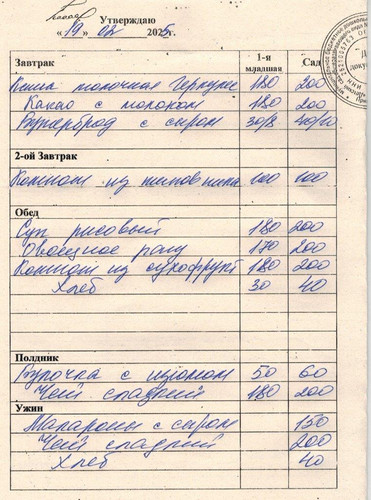 Утверждаю
«19» 02 2025г.
Завтрак 1-я младшая Сад
Каша молочная Геркулес 180 200
Какао с молоком 180 200
Бутерброд с сыром 30/8 40/10
2-ой Завтрак
Компот из шиповника 100 100
Обед
Суп рисовый 180 200
Овощное рагу 170 200
Компот из сухофрукт 180 200
Хлеб 30 40
Полдник
Булочка с изюмом 50 60
Чай сладкий 180 200
Ужин
Макароны с сыром 150
Чай сладкий 200
Хлеб 40